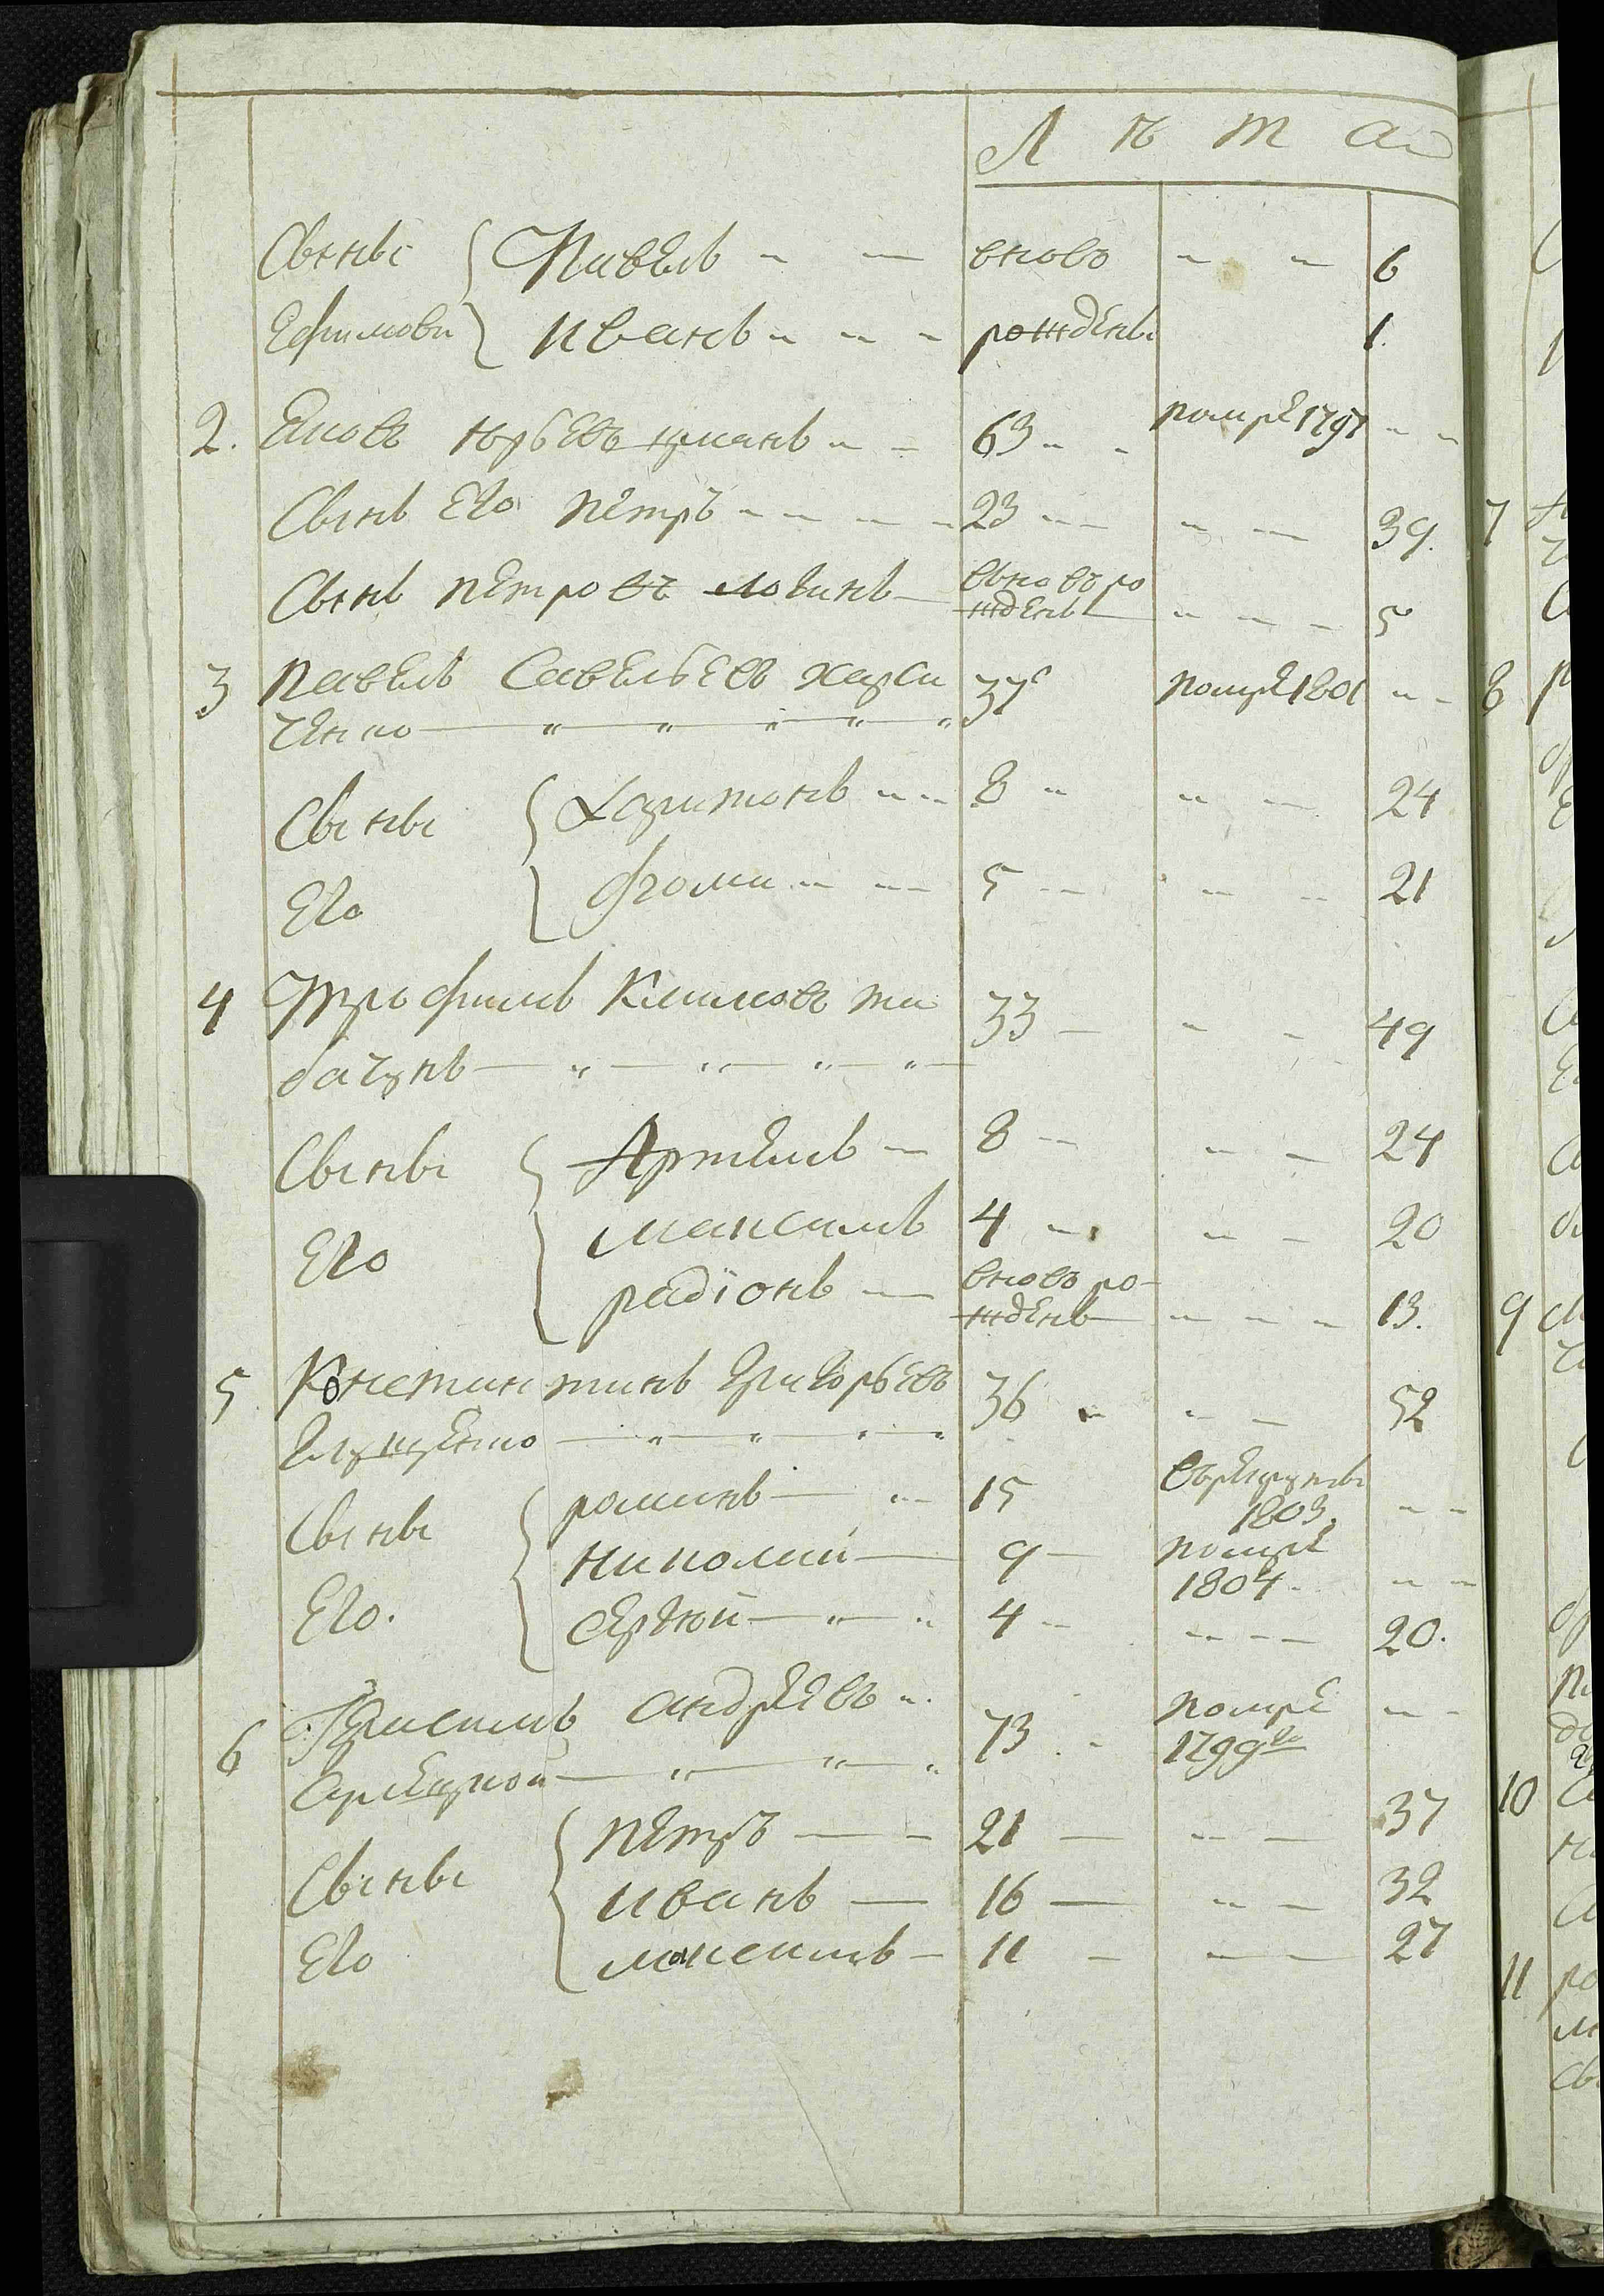 Л ѣ т а
Сынъı { Павелъ вновь 6
Ефимовы { иванъ рожденъı 1.
2. Яковъ юрьевъ 63 помре 1797
Сынъ Его Петръ 23 39.
Сынъ Петровъ логинъ вновь ро 5
жденъ
3 Павелъ Савельевъ харси 37 помре 1801
ченко
Сыны { Харитонъ 8 24
Его { фома 5 21
4 Трофимъ Климовъ та 33 49
бачунъ
Сыны { Артемъ 8 24
Его максимъ 4 20
радïонъ вновь ро
жденъ 13.
5 Константинъ Григорьевъ 36 52
Глущенко
Сыны { романъ 15 въ рекруты
1803.
николай 9 помре
1804.
Его. сергей 4 20.
6 Герасимъ андреевъ 73 помре
1799го
Сыны { петръ 21 37
иванъ 16 32
Его максимъ 11 27
7
8
9
10
11